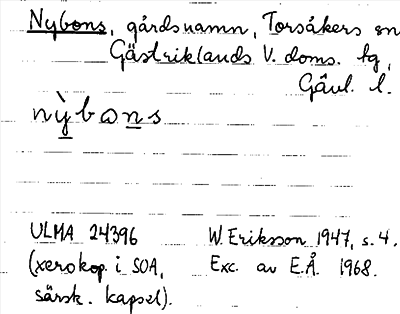 Nybons, gårdsnamn, Torsåkers sn
Gästriklands V. doms. tg,
Gävl. l.
nỳbons
ULMA 24396 W. Eriksson 1947, s. 4.
(xerokop. i SOA, Exc. av E.Å. 1968.
särsk. kapsel).